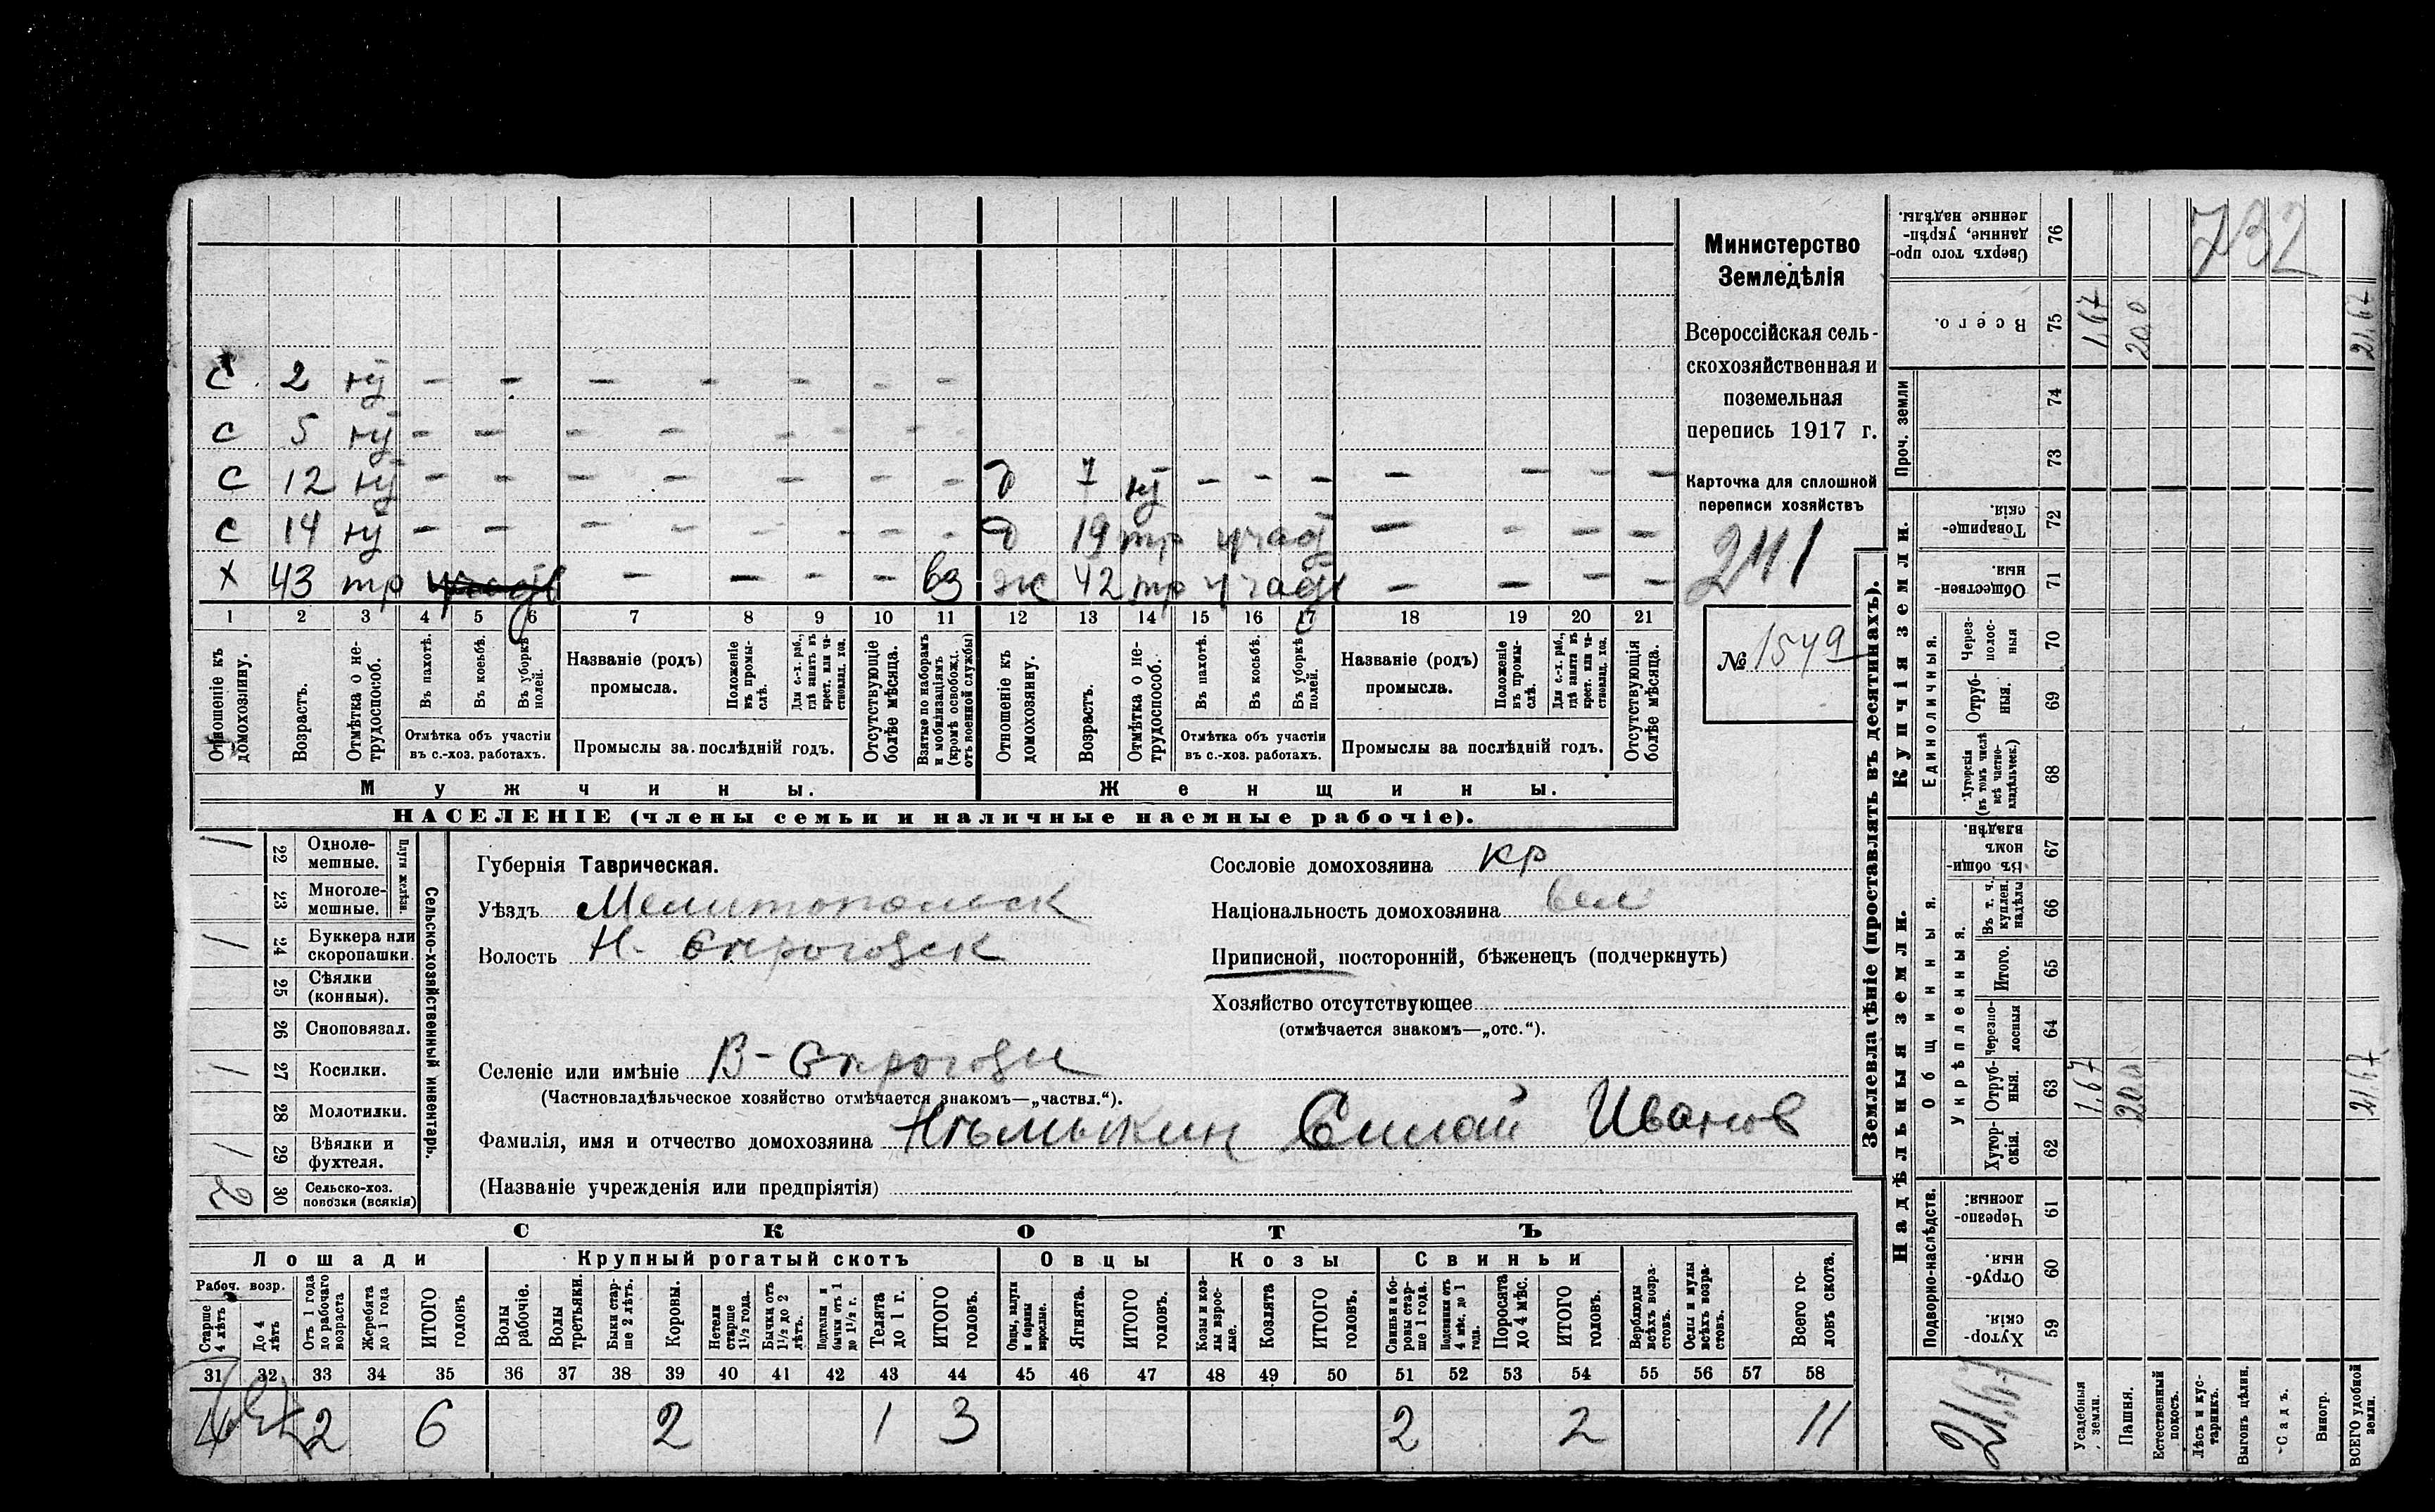 С 2 нў - - - - - - -
С 5 нў - - - - - - -
С 12 нў - - - - - - - д 7 нў - - - - - - -
С 14 нў - - - - - - - д 19 тр участ - - - -
Х 43 тр - - - - вз ж 42 тр участ - - - -
1 2 3 4 5 6 7 8 9 10 11 12 13 14 15 16 17 18 19 20 21
Отношеніе къ домохозяину.
Возрастъ.
Отмѣтка о нетрудоспособ.
Въ пахотѣ.
Въ косьбѣ.
Въ уборкѣ полей.
Отмѣтка объ участіи въ с.-хоз. работахъ.
Названіе (родъ) промысла.
Положеніе въ промыслѣ.
Для с.-х. раб., гдѣ занятъ въ крест. или частновлад. хоз.
Промыслы за послѣдній годъ.
Отсутствующіе болѣе мѣсяца.
Взятые по наборамъ и мобилизаціямъ (кромѣ освобожд. отъ военной службы)
Отношеніе къ домохозяину.
Возрастъ.
Отмѣтка о нетрудоспособ.
Въ пахотѣ.
Въ косьбѣ.
Въ уборкѣ полей.
Отмѣтка объ участіи въ с.-хоз. работахъ.
Названіе (родъ) промысла.
Положеніе въ промыслѣ.
Для с.-х. раб., гдѣ занята въ крест. или частновлад. хоз.
Промыслы за послѣдній годъ.
Отсутствующія болѣе мѣсяца.
Мужчины.
Женщины.
НАСЕЛЕНІЕ (члены семьи и наличные наемные рабочіе).
Министерство
Земледѣлія
Всероссійская сель-
скохозяйственная и
поземельная
перепись 1917 г.
Карточка для сплошной
переписи хозяйствъ
241
№ 1549
1 22 Одноле-мешные.
23 Многоле-мешные.
Плуги желѣзн.
1 24 Буккера или скоропашки.
25 Сѣялки (конныя).
26 Сноповязал.
1 27 Косилки.
28 Молотилки.
1 29 Вѣялки и фухтеля.
2 30 Сельско-хоз. повозки (всякія)
Сельско-хозяйственный инвентарь.
Губернія Таврическая.
Уѣздъ Мелитопольск
Волость Н- Сѣрогозск
Селеніе или имѣніе В- Сѣрогозы
(Частновладѣльческое хозяйство отмѣчается знакомъ—„частвл.“).
Фамилія, имя и отчество домохозяина Нѣмыкин Силай Иванов
(Названіе учрежденія или предпріятія)
Сословіе домохозяина кр
Національность домохозяина вел
Приписной, посторонній, бѣженецъ (подчеркнуть)
Хозяйство отсутствующее
(отмѣчается знакомъ—„отс.“).
СКОТЪ
Лошади Крупный рогатый скотъ Овцы Козы Свиньи
Рабоч. возр.
Старше 4 лѣтъ
До 4 лѣтъ
Отъ 1 года до рабочаго возраста
Жеребята до 1 года
ИТОГО головъ
Волы рабочіе.
Волы третьяки.
Быки старше 2 лѣтъ.
Коровы.
Нетели старше 1½ года.
Бычки отъ 1½ до 2 лѣтъ.
Подтелки и бычки отъ 1 до 1½ г.
Телята до 1 г.
ИТОГО головъ.
Овцы, валухи и бараны взрослые.
Ягнята.
ИТОГО головъ.
Козы и козлы взрослые.
Козлята
ИТОГО головъ.
Свиньи и боровы старше 1 года.
Подсвинки отъ 4 мѣс. до 1 года.
Поросята до 4 мѣс.
ИТОГО головъ.
Верблюды всѣхъ возрастовъ.
Ослы и мулы всѣхъ возрастовъ.
Всего головъ скота.
31 32 33 34 35 36 37 38 39 40 41 42 43 44 45 46 47 48 49 50 51 52 53 54 55 56 57 58
2 6 2 1 3 2 2 11
Землевладѣніе (проставлять въ десятинахъ).
Надѣльныя земли.
Купчія земли.
Проч. земли
Подворно-наслѣдств.
Общинныя.
Укрѣпленныя.
Единоличныя.
Хуторскія. 59
Отрубныя. 60
Черезполосныя. 61
Хуторскія. 62
Отрубныя. 63 1,67 20,0 21,67
Черезполосныя 64
Итого. 65
Въ т. ч. куплен. надѣлы 66
Въ общинномъ владѣн. 67
Хуторскія (въ томъ числѣ всѣ частновладѣльческ.) 68
Отрубныя. 69
Черезполосныя 70
Общественныя. 71
Товарищескія. 72
73
74
Всего. 75 1,67 20,0 21,67
Сверхъ того проданные, укрѣпленные надѣлы. 76
732
21,67
Усадебныя земли.
Пашня.
Естественный покосъ.
Лѣсъ и кустарникъ.
Выгонъ цѣлин.
Садъ.
Виногр.
ВСЕГО удобной земли.